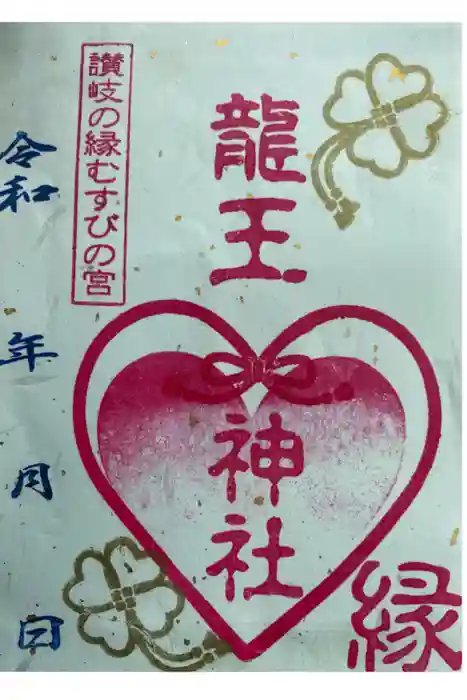 龍王神社
讃岐の縁むすびの宮
縁
令和 年 月 日